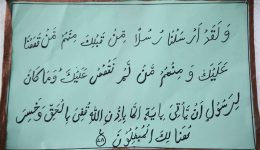 وَلَقَدْ أَرْسَلْنَا رُسُلًا مِّن قَبْلِكَ مِنْهُم مَّن قَصَصْنَا
عَلَيْكَ وَمِنْهُم مَّن لَّمْ نَقْصُصْ عَلَيْكَ وَمَا كَانَ
لِرَسُولٍ أَن يَأْتِىَ بِـَٔايَةٍ إِلَّا بِإِذْنِ اللَّهِ قُضِىَ بِالْحَقِّ وَخَسِرَ
هُنَالِكَ الْمُبْطِلُونَ